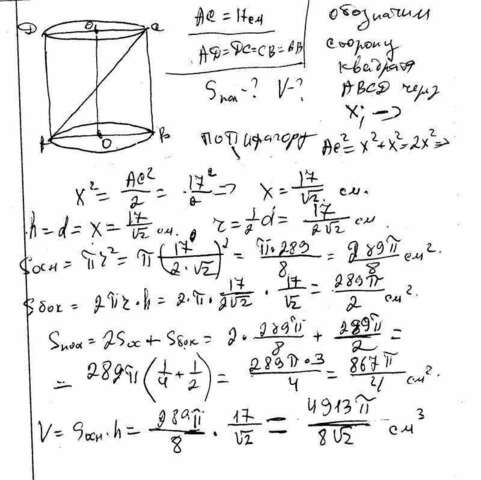 D O₁ C
A O B
AC = 17 см
AD=DC=CB=AB
Sпол-? V-?
обозначим
сторону
квадрата
ABCD через
x; →
по Пифагору
AC²=x²+x²=2x²⇒
x² = AC²/2 = 17²/2 ⇒ x = 17/√2 см.
h=d=x=17/√2 см. r=1/2 d = 17/2√2 см
Sосн = πr² = π(17/2·√2)² = π·289/8 = 289π/8 см².
Sбок = 2πr·h = 2·π·17/2√2 · 17/√2 = 289π/2 см².
Sпол = 2Sос + Sбок = 2·289π/8 + 289π/2 =
= 289π(1/4 + 1/2) = 289π·3/4 = 867π/4 см².
V = Sосн·h = 289π/8 · 17/√2 = 4913π/8√2 см³